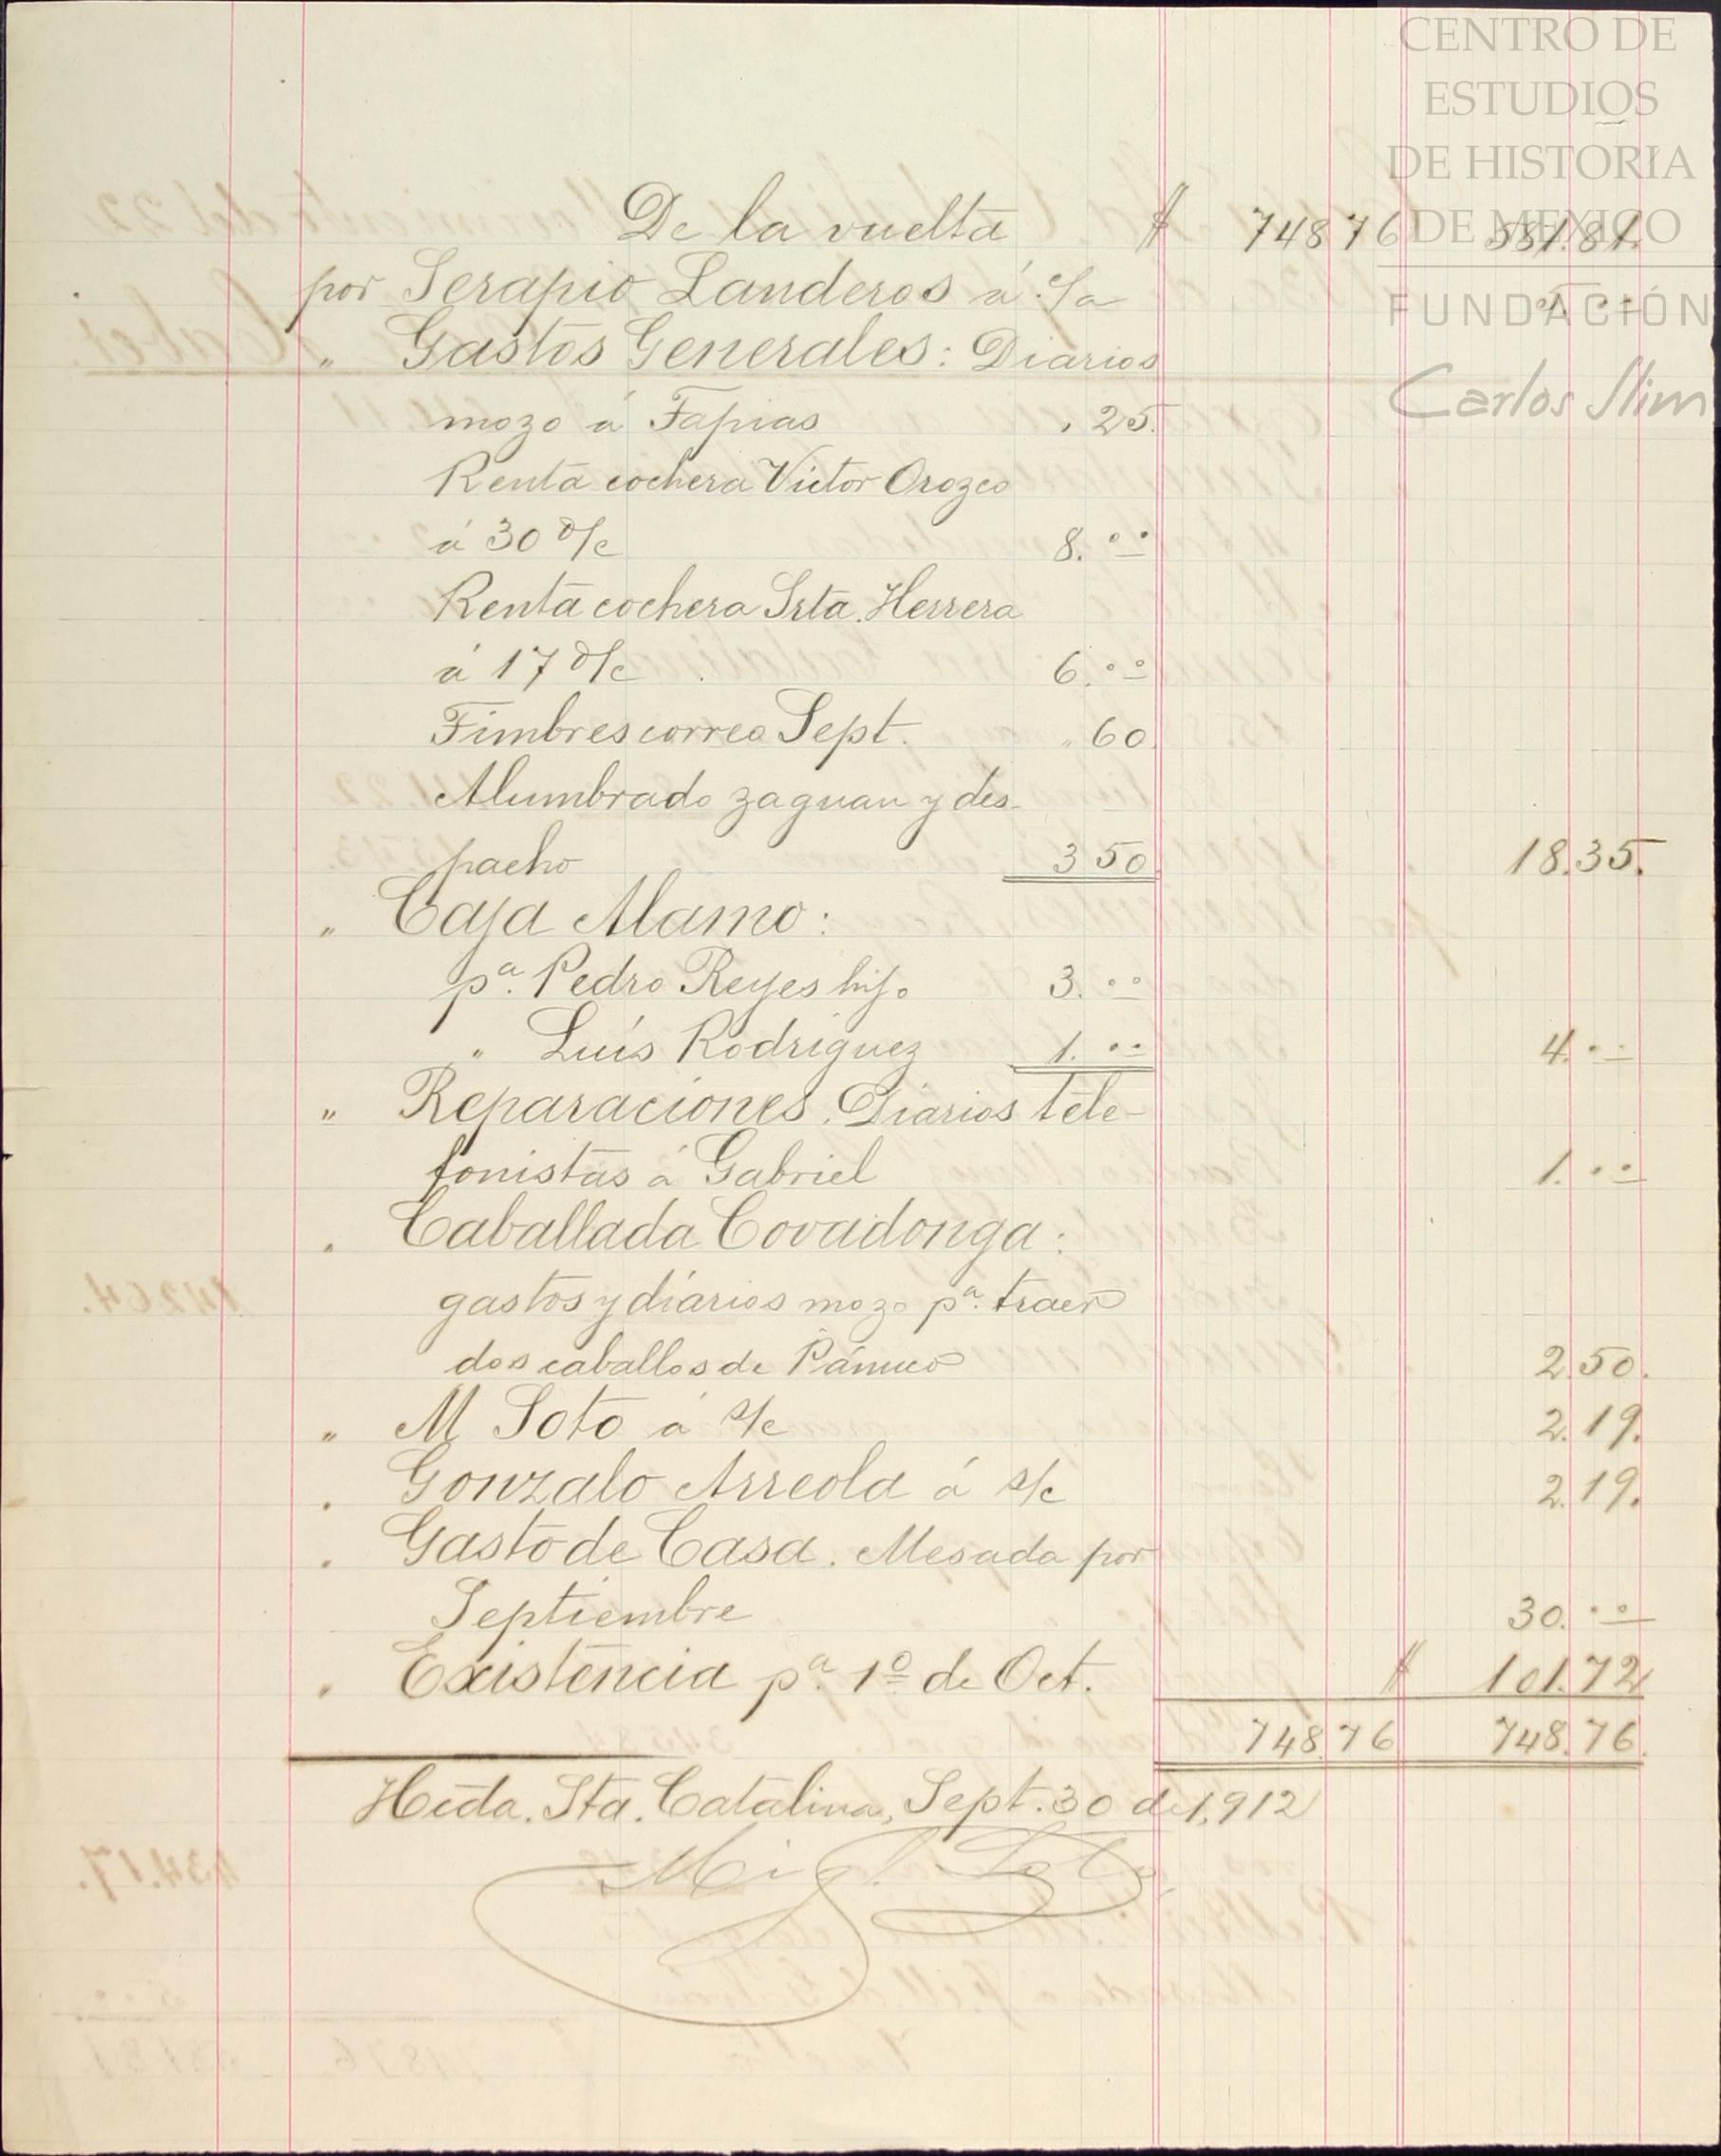 CENTRO DE
ESTUDIOS
DE HISTORIA
DE MEXICO
FUNDACIÓN
Carlos Slim
De la vuelta $ 748 76 581.81.
por Serapio Landeros á c/a 5. °°
" Gastos Generales: Diarios
mozo á Tapias . 25.
Renta cochera Victor Orozco
á 30 d/c 8. °°
Renta cochera Srta. Herrera
á 17 d/c 6. °°
Timbres correo Sept. " 60.
Alumbrado zaguan y des-
pacho 3 50 18.35.
" Caja Alamo:
pª. Pedro Reyes hijo 3. °°
" Luís Rodríguez 1. °° 4. °°
" Reparaciones. Diarios tele-
fonistas á Gabriel 1. °°
" Caballada Covadonga:
gastos y diarios mozo pª. traer
dos caballos de Pánuco 2.50.
" M Soto á s/c 2.19.
" Gonzalo Arreola á s/c 2.19.
" Gasto de Casa. Mesada por
Septiembre 30. °°
" Existencia pª. 1º de Oct. $ 101.72
748.76 748.76
Hcda. Sta. Catalina, Sept. 30 de 1,912
Migl. Soto